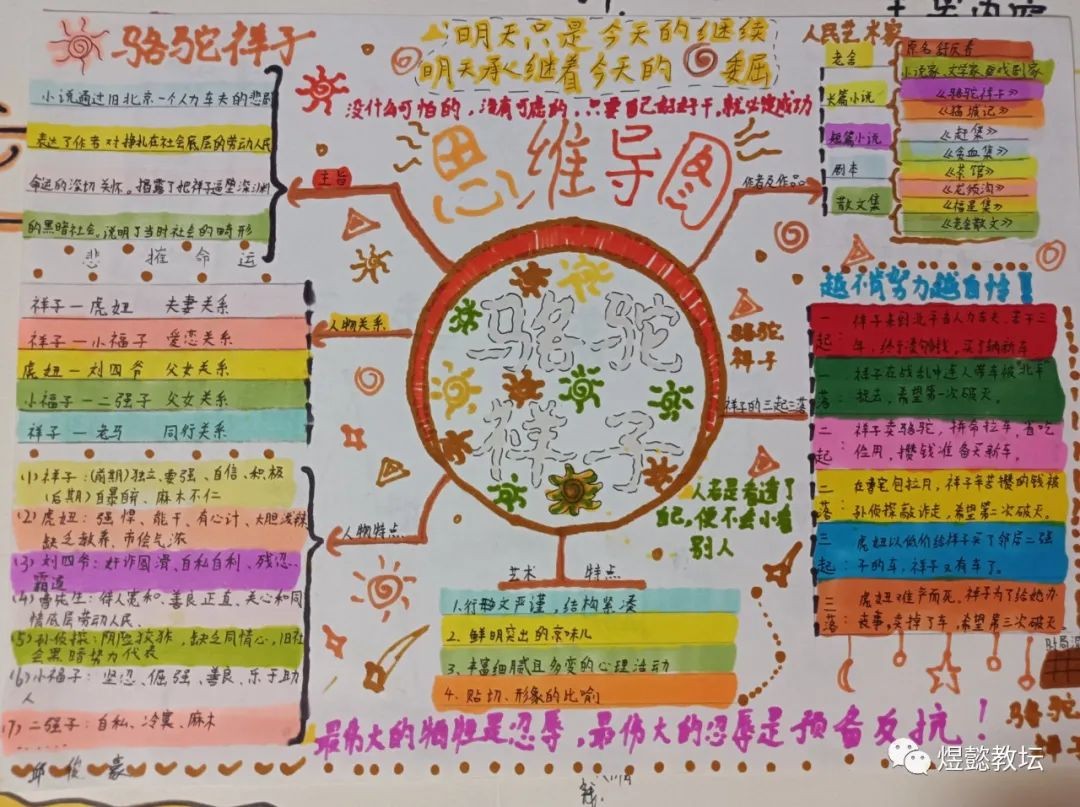 骆驼祥子
小说通过旧北京一个人力车夫的悲剧
表达了作者对挣扎在社会底层的劳动人民
命运的深切关怀。揭露了把祥子逼堕深渊
的黑暗社会,说明了当时社会的畸形
悲摧命运
主旨
明天只是今天的继续
明天承继着今天的委屈
没什么可怕的,没有可虑的,只要自己好好干,就必定成功
思维导图
作者及作品
人民艺术家
老舍
原名舒庆春
小说家、文学家
长篇小说
《骆驼祥子》
《猫城记》
短篇小说
《赶集》
《贫血集》
剧本
《茶馆》
《龙须沟》
散文集
《福星集》
《老舍散文》
人物关系
祥子—虎妞 夫妻关系
祥子—小福子 爱恋关系
虎妞—刘四爷 父女关系
小福子—二强子 父女关系
祥子—老马 同行关系
骆驼
祥子
骆驼
祥子
祥子的三起三落
越不肯努力越自怜!!
一起:祥子来到北平当人力车夫、苦干三
年,终于凑够钱,买了辆新车
一落:祥子在战乱中连人带车被
掳去,希望第一次破灭。
二起:祥子卖骆驼,拼命拉车,省吃
俭用,攒钱准备买新车。
二落:在曹宅包拉月,祥子辛苦攒的钱被
孙侦探敲诈走,希望第二次破灭。
三起:虎妞以低价给祥子买了邻居二强
子的车,祥子又有车了。
三落:虎妞难产而死,祥子为了给她办
丧事,卖掉了车,希望第三次破灭
人物特点
(1)祥子:(前期)独立、要强、自信、积极
(后期)自暴自弃、麻木不仁
(2)虎妞:强悍、能干、有心计、大胆泼辣
缺乏教养、市侩气浓
(3)刘四爷:奸诈圆滑、自私自利、残忍
霸道
(4)曹先生:待人宽和、善良正直、关心和同
情底层劳动人民、
(5)孙侦探:阴险狡诈,缺乏同情心,旧社
会黑暗势力代表
(6)小福子:坚忍、倔强、善良、乐于助
人
(7)二强子:自私、冷漠、麻木
人若是看透了
自己,便不会小看
别人
艺术特点
1.行文严谨,结构紧凑
2.鲜明突出的京味儿
3.丰富细腻且多变的心理活动
4.贴切、形象的比喻
最伟大的牺牲是忍辱,最伟大的忍辱是预备反抗!
骆驼
祥子
煜懿教坛